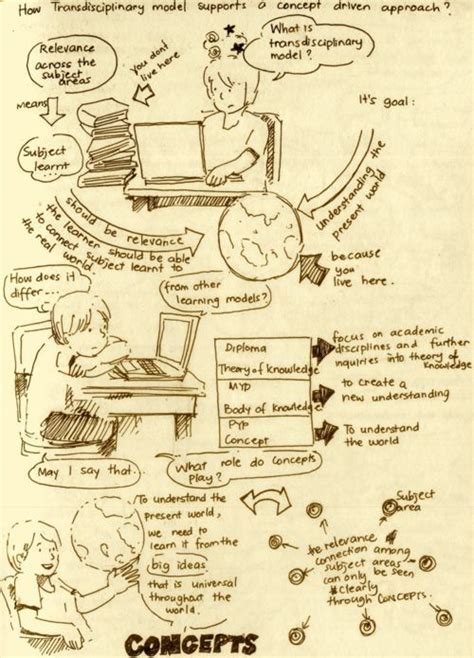 How Transdisciplinary model supports a concept driven approach?
Relevance
across the
subject
areas
means
Subject
learnt
you dont
live here
What is
transdisciplinary
model?
It's goal:
understanding the
present world
because
you
live here.
should be relevance
the learner should be able
to connect subject learnt to
the real world
How does it
differ...
from other
learning models?
Diploma
Theory of Knowledge
MYP
Body of Knowledge
PYP
Concept
focus on academic
disciplines and further
inquiries into theory of
knowledge
to create a
new understanding
To understand
the world
May I say that..
What role do concepts
play?
To understand the
present world,
we need to
learn it from the
big ideas
that is universal
throughout the
world.
CONCEPTS
Subject
area
the relevance
connection among
subject areas
can only be seen
clearly
through CONCEPTS.